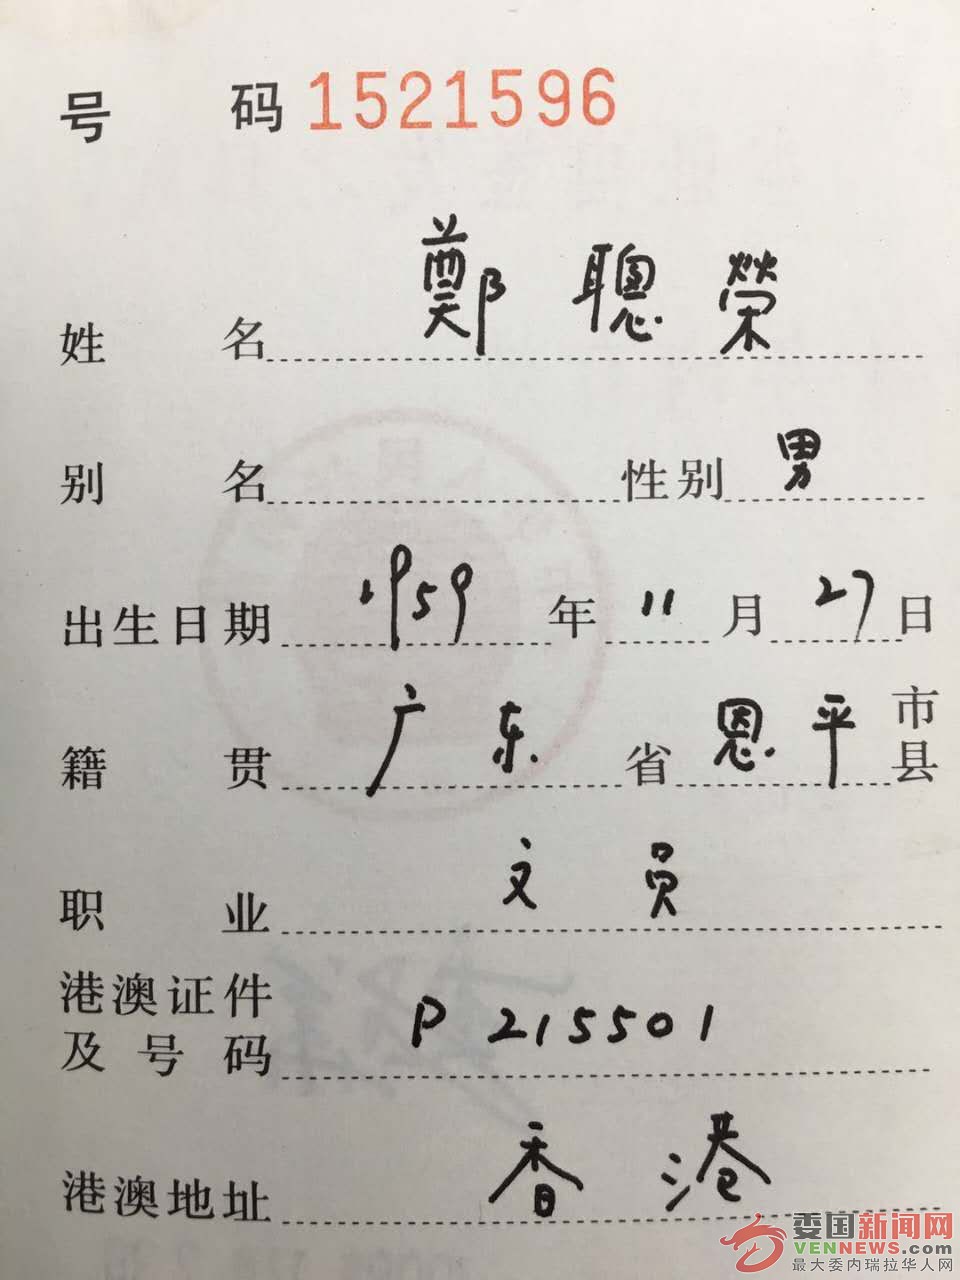 号 码 1521596
姓 名 鄭聰榮
别 名 性别 男
出生日期 1959 年 11 月 27 日
籍 贯 广东 省 恩平 市县
职 业 文员
港澳证件
及号码 P215501
港澳地址 香港
委国新闻网
VENNEWS.com
最大委内瑞拉华人网